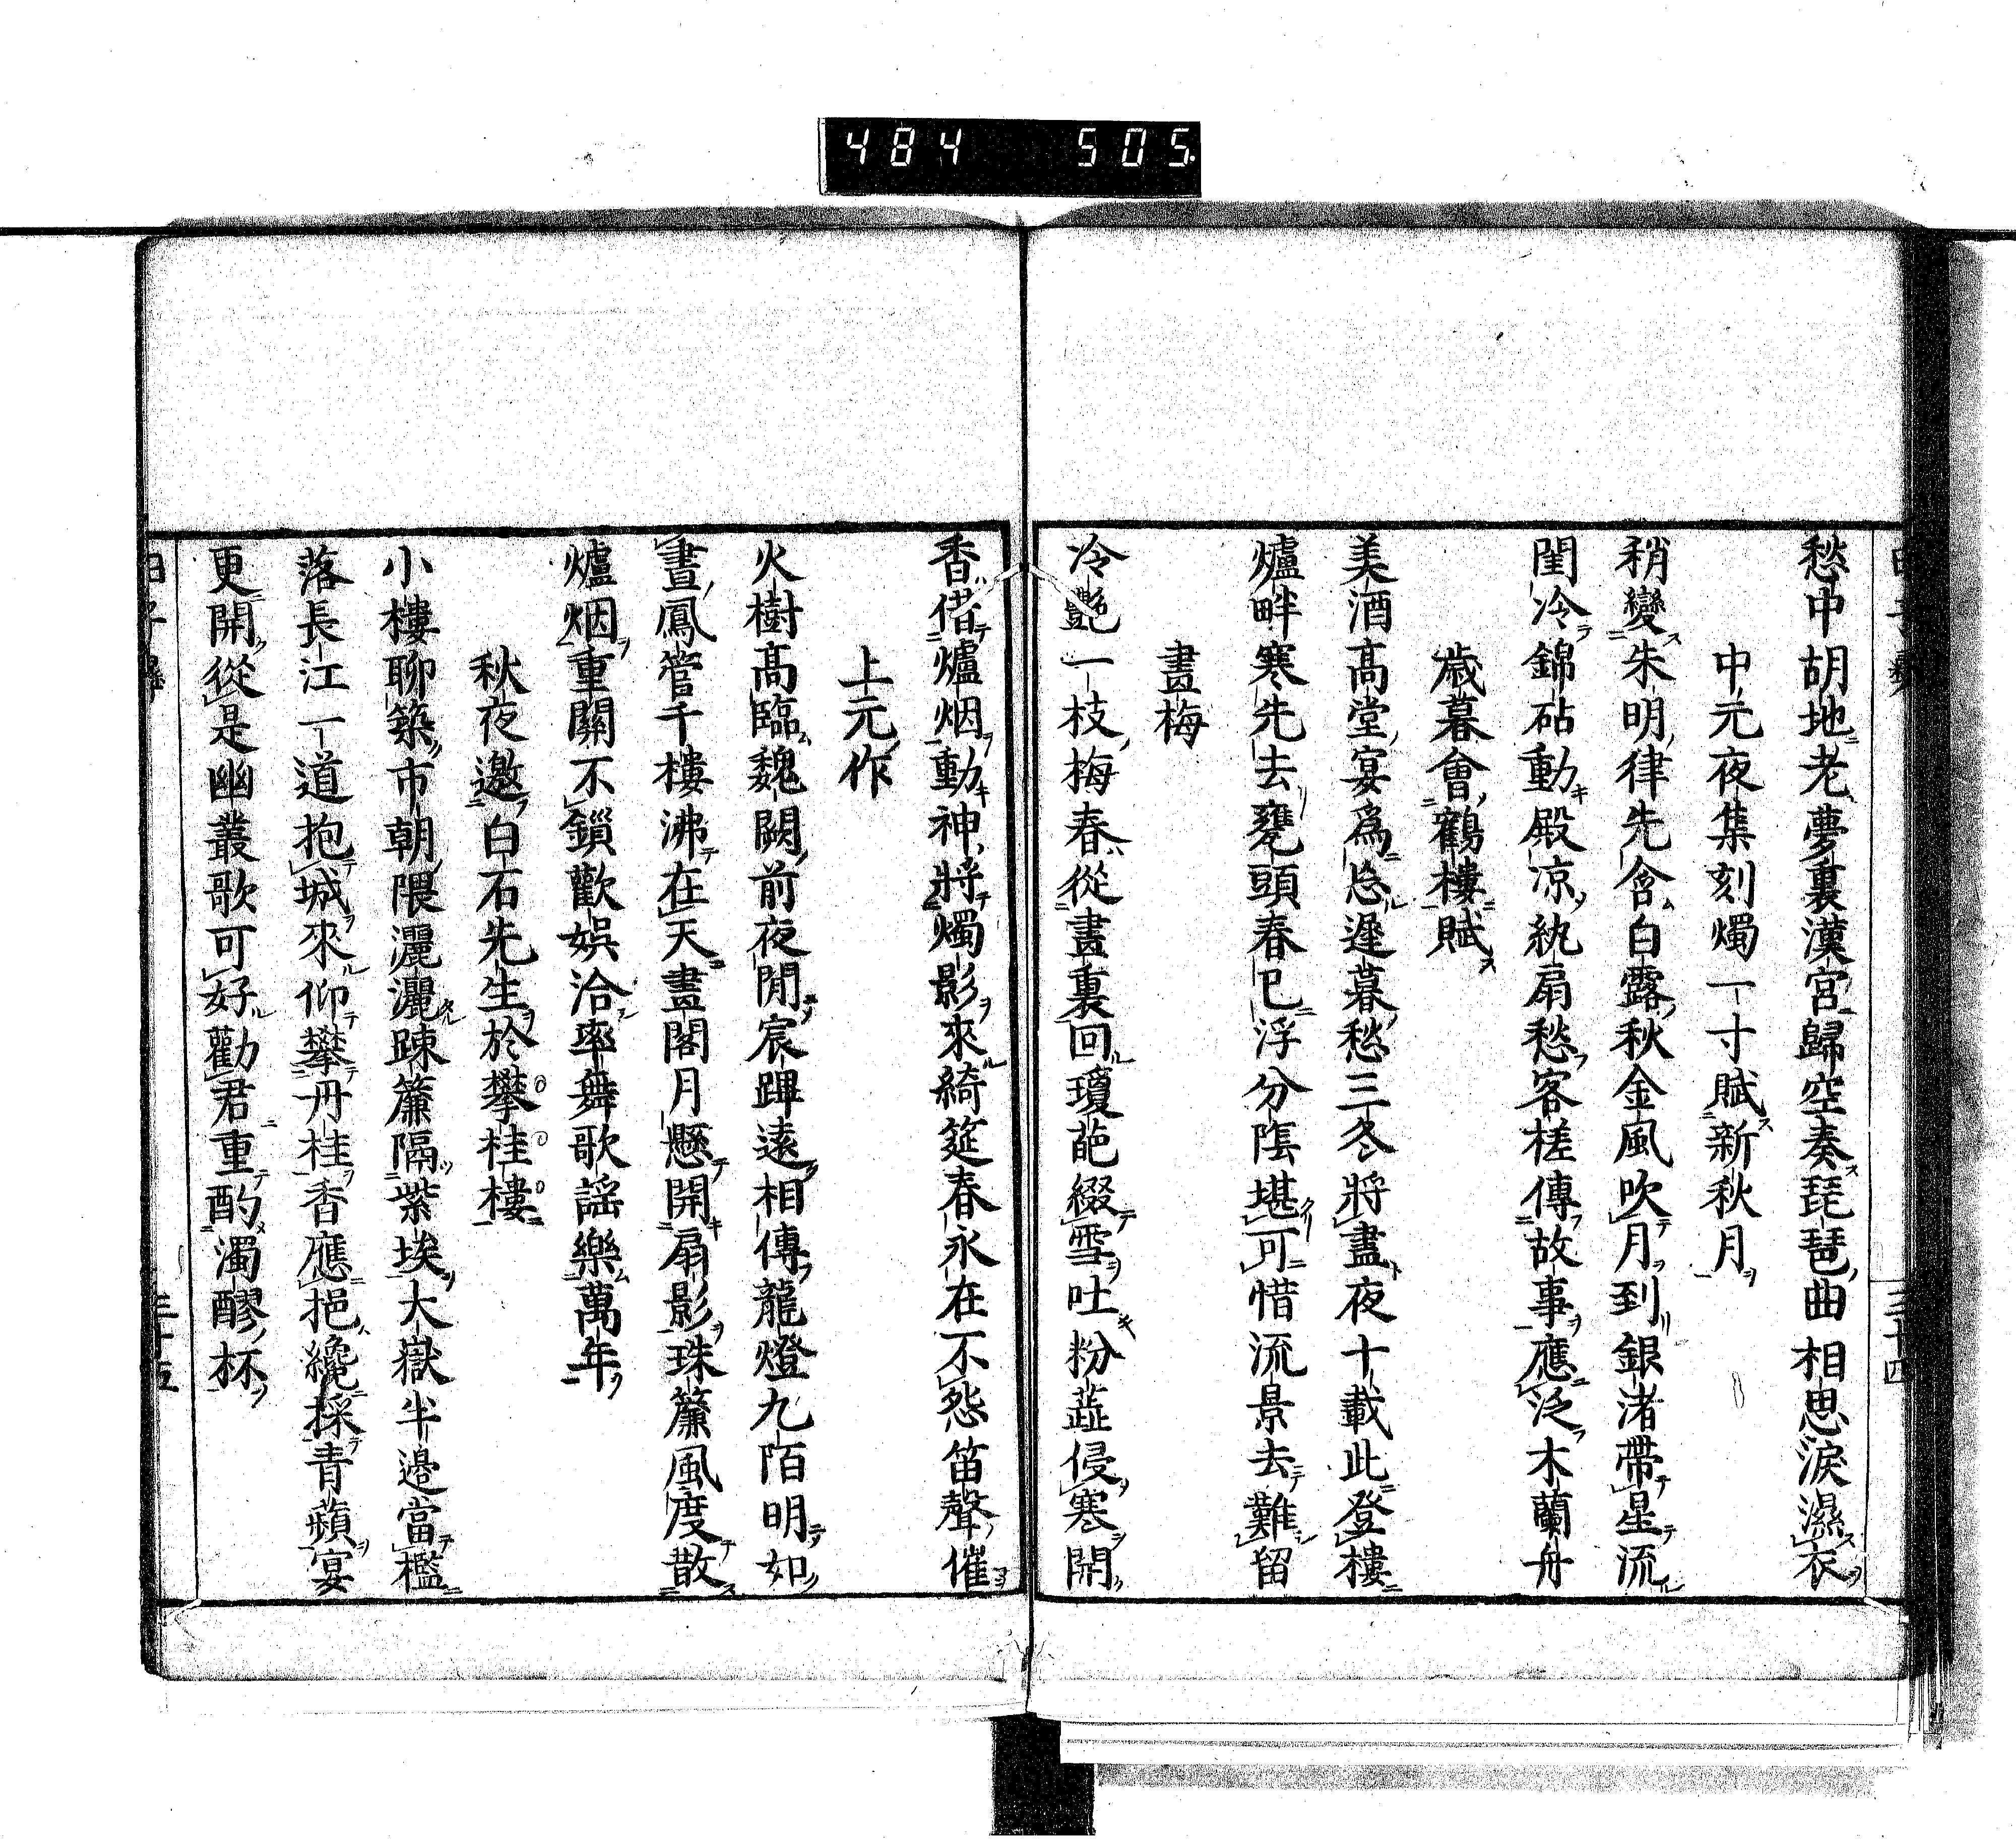 484 505
愁中胡地老夢裏漢宮歸空奏琵琶曲相思淚濕衣
中元夜集刻燭一寸賦新秋月
稍變朱明律先含白露秋金風吹月到銀渚帶星流
閨冷錦砧動殿凉紈扇愁客槎傳故事應泛木蘭舟
歳暮會鶴樓賦
美酒高堂宴爲忘遲暮愁三冬將盡夜十載此登樓
爐畔寒先去甕頭春已浮分陰堪可惜流景去難留
畫梅
冷艷一枝梅春從畫裏回瓊葩綴雪吐粉蕋侵寒開
香借爐烟動神將燭影來綺筵春永在不怨笛聲催
上元作
火樹高臨魏闕前夜閒宸蹕遠相傳龍燈九陌明如
晝鳳管千樓沸在天畫閣月懸開扇影珠簾風度散
爐烟重關不鎖歡娯洽率舞歌謡樂萬年
秋夜邀白石先生於攀桂樓
小樓聊築市朝隈灑灑踈簾隔紫埃大嶽半邉當檻
落長江一道抱城來仰攀丹桂香應挹纔採青蘋宴
更開從是幽叢歌可好勸君重酌濁醪杯
三十四
三十五